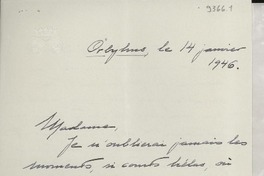 93661
Orbylus, le 14 janvier
1946.
Madame,
Je n'oublierai jamais les
moments, si courts hélas, où